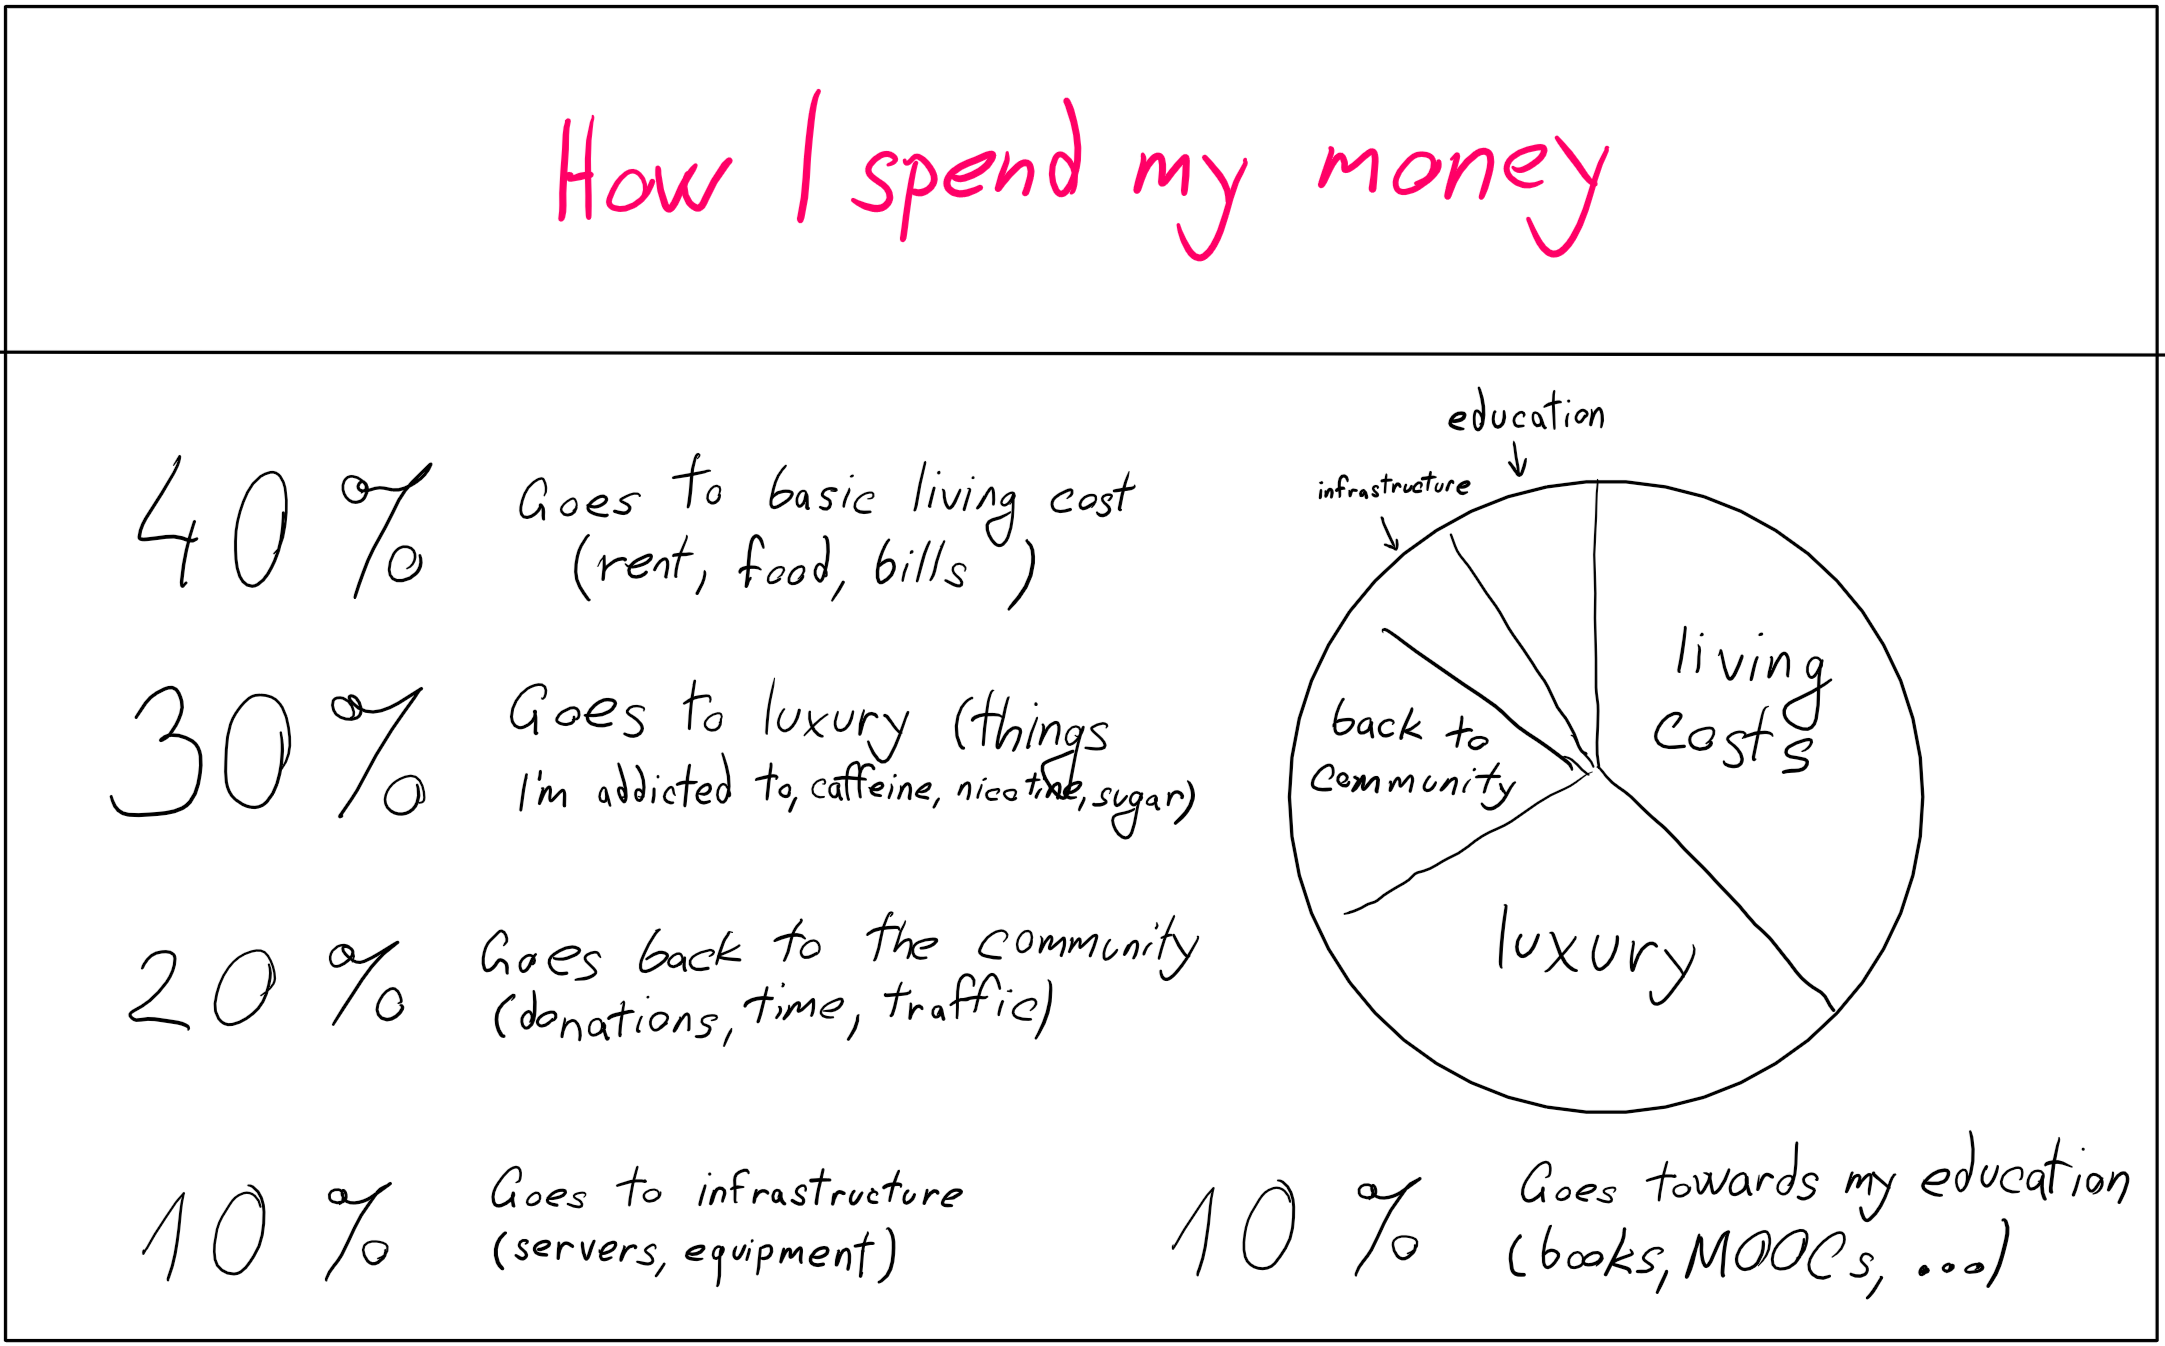 How I spend my money
40% Goes to basic living cost
(rent, food, bills )
30% Goes to luxury (things
I'm addicted to, caffeine, nicotine, sugar)
20% Goes back to the community
(donations, time, traffic)
10% Goes to infrastructure
(servers, equipment)
education
infrastructure
living
costs
back to
community
luxury
10% Goes towards my education
(books, MOOCs, ...)